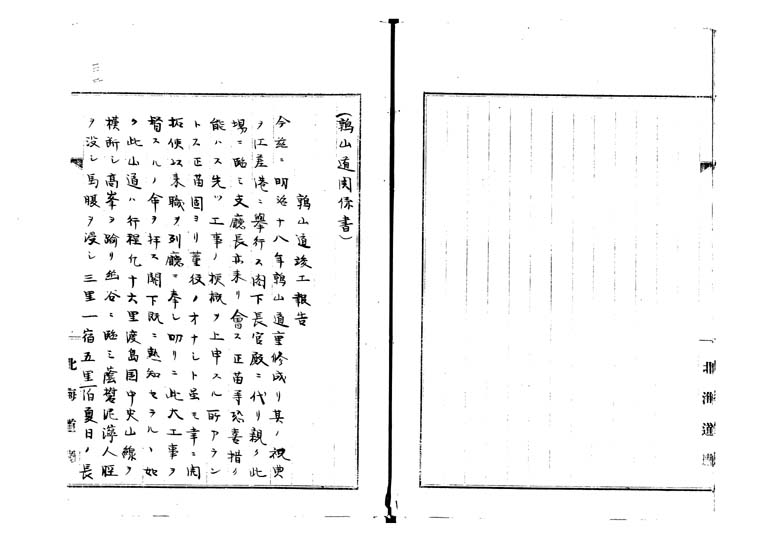 (鶉山道関係書)
鶉山道竣工報告
今茲ニ明治十八年鶉山道重修成リ其ノ祝典
ヲ江差港ニ擧行ス閣下長官殿ニ代リ親シク此
場ニ臨ミ支廳長亦来リ會ス正苗等恐喜措ク
能ハス先ツ工事ノ梗概ヲ上申スル所アラン
トス正苗固ヨリ董役ノオナシト虽モ幸ニ開
拓使以来職ヲ列廳ニ奉シ叨リニ此大工事ヲ
督スルノ命ヲ拝ス閣下既ニ熟知セラルヽ如
ク此山道ハ行程凡十六里渡島国中央山線ヲ
横断シ高峯ヲ踰リ幽谷ニ臨ミ蔭翳泥濘人脛
ヲ没シ馬腹ヲ浸シ三里一宿五里一泊夏日ノ長
北海道
一
北海道